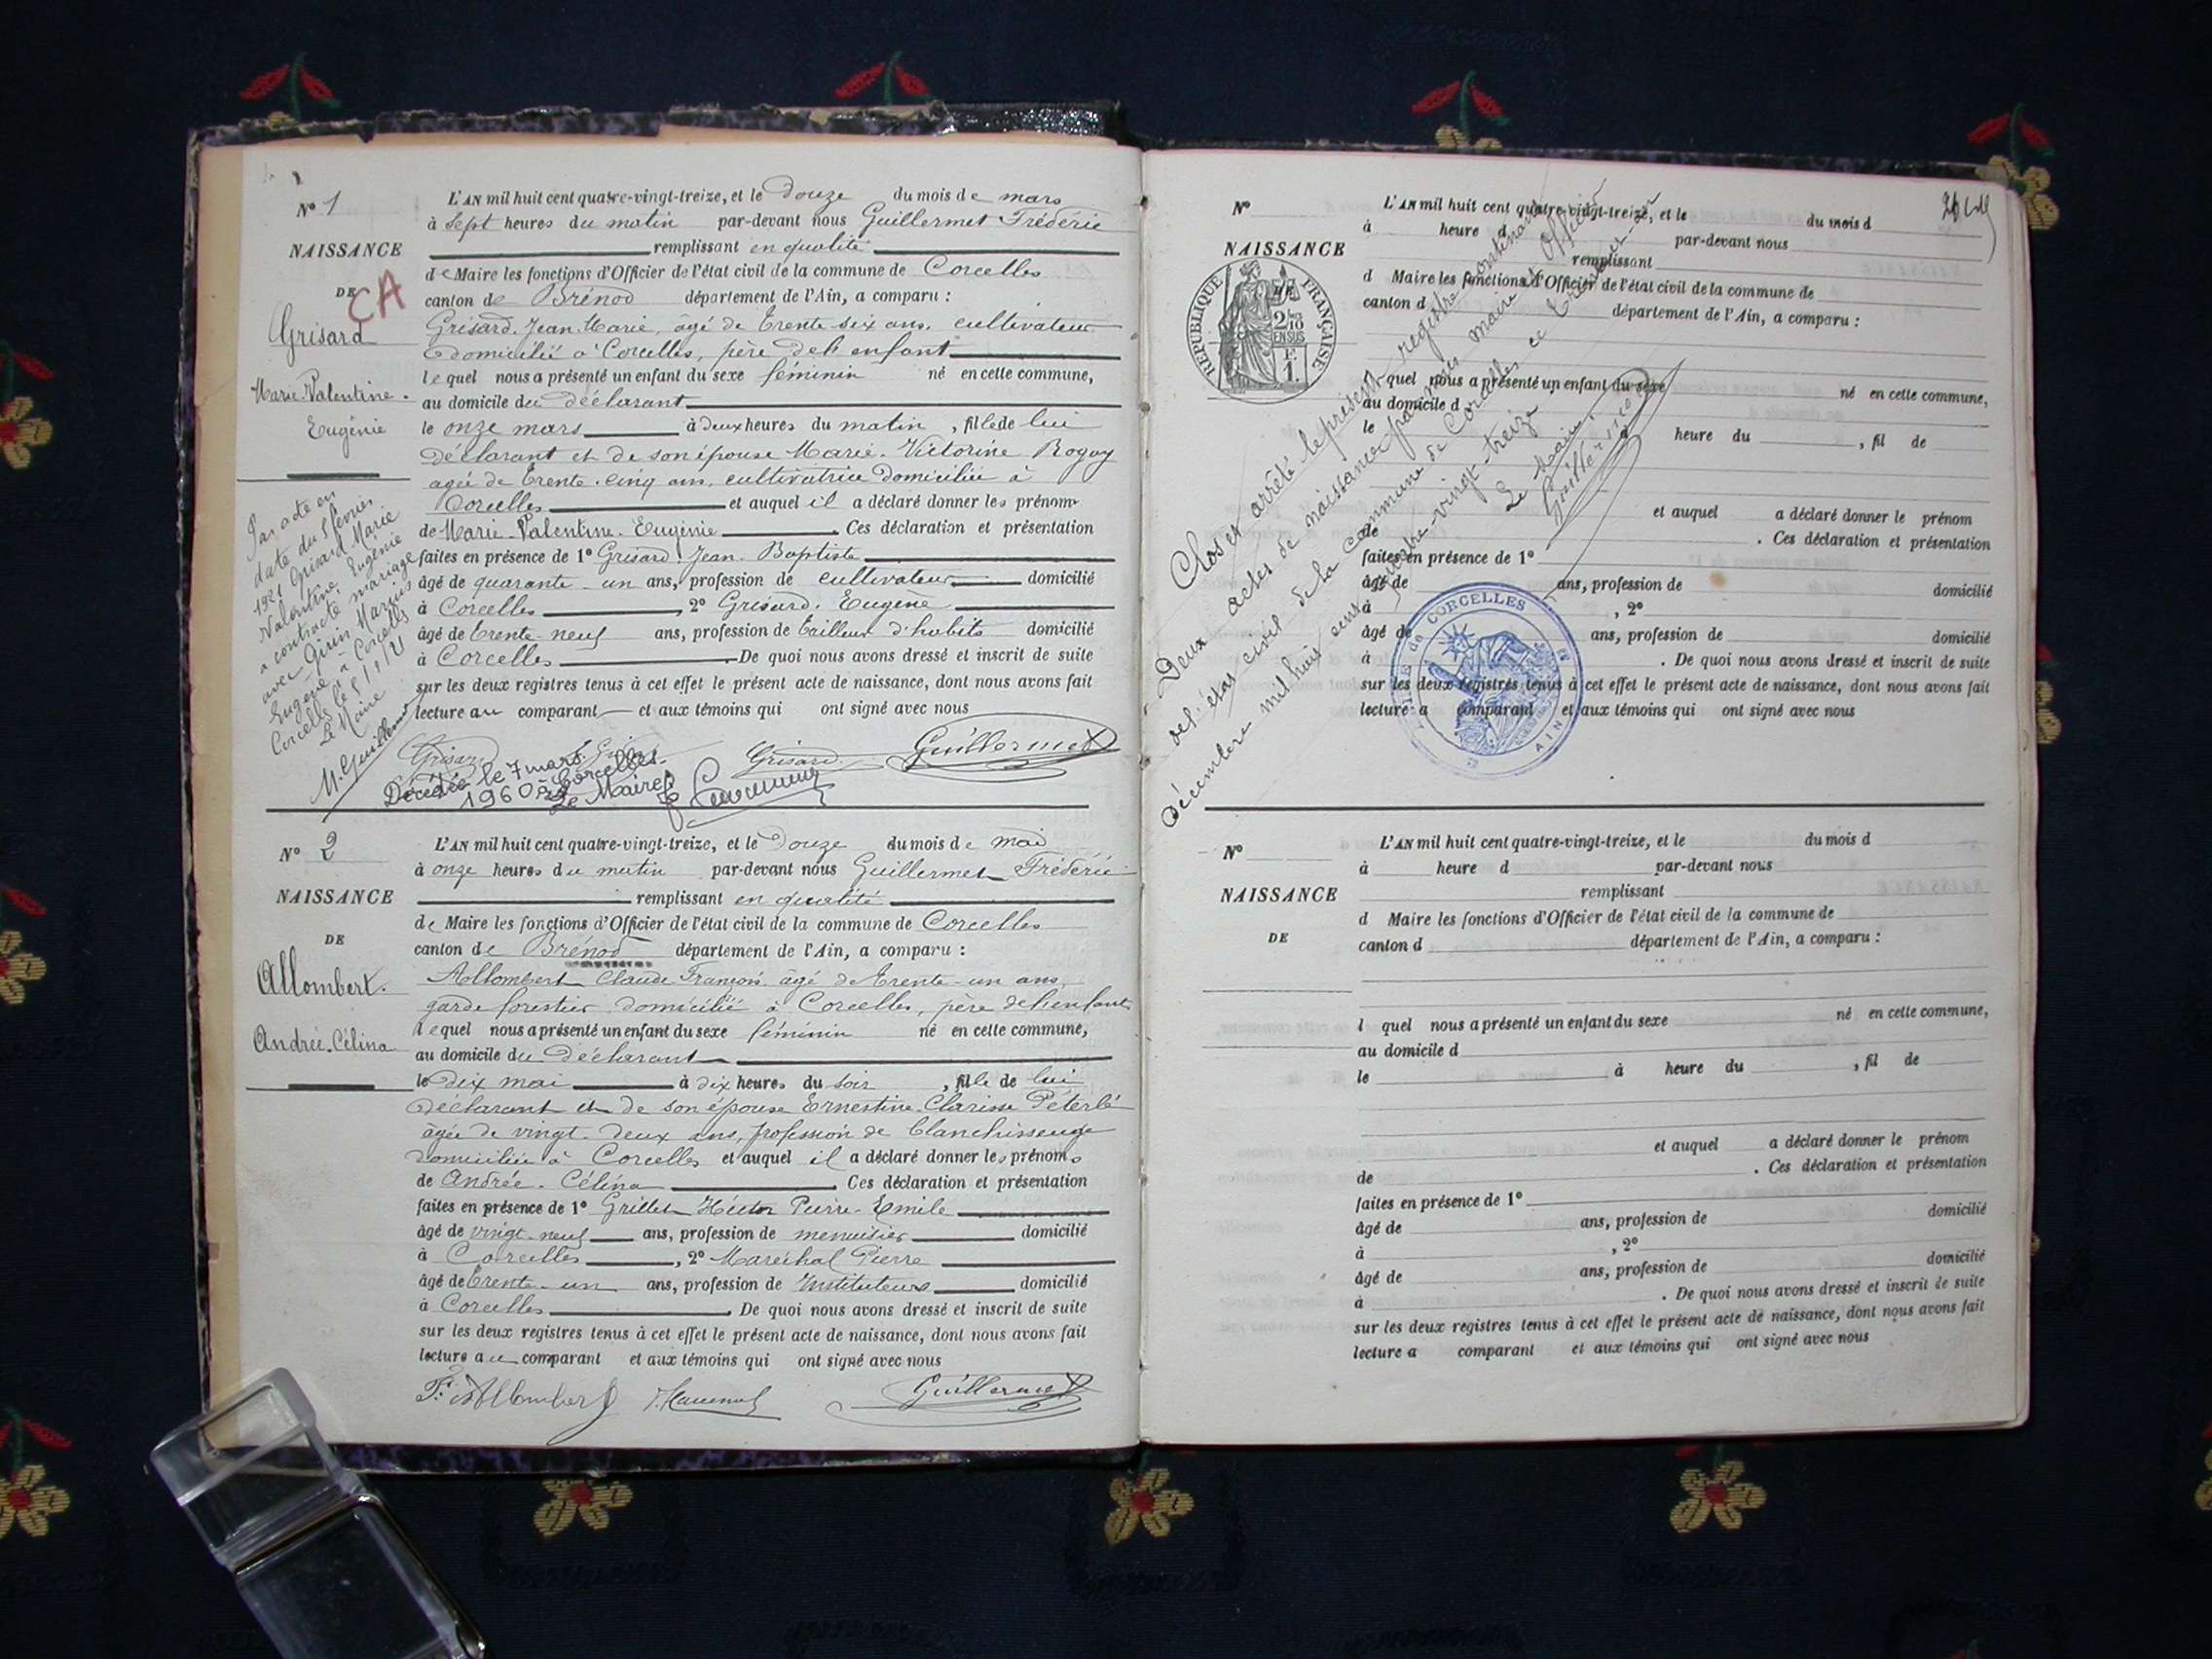 Nº 1
NAISSANCE
DE
CA
Grisard
Marie-Valentine.
Eugénie
L'AN mil huit cent quatre-vingt-treize, et le Douze du mois de mars
à Sept heures du matin par-devant nous Guillermet Frédéric
remplissant en qualité
de Maire les fonctions d'Officier de l'état civil de la commune de Corcelles
canton de Brénod département de l'Ain, a comparu :
Grisard. Jean Marie, âgé de Trente six ans, cultivateur
Domicilié à Corcelles, père de l'enfant
lequel nous a présenté un enfant du sexe féminin né en cette commune,
au domicile du déclarant
le onze mars à deux heures du matin, fille de lui
Déclarant et de son épouse Marie-Victorine Roguy
agée de Trente-cinq ans, cultivatrice Domiciliée à
Corcelles et auquel il a déclaré donner les prénoms
de Marie-Valentine-Eugénie Ces déclaration et présentation
faites en présence de 1º Grisard Jean-Baptiste
âgé de quarante-un ans, profession de cultivateur domicilié
à Corcelles, 2º Grisard. Eugène
âgé de Trente-neuf ans, profession de Tailleur d'habits domicilié
à Corcelles De quoi nous avons dressé et inscrit de suite
sur les deux registres tenus à cet effet le présent acte de naissance, dont nous avons fait
lecture au comparant et aux témoins qui ont signé avec nous
Grisard Grisard Guillermet
Par acte en
date du 5 février
1921 Grisard Marie
Valentine Eugénie
a contracté mariage
avec Girin Marius
Eugène à Corcelles
Corcelles le 5/2/21
Le Maire
M. Guillermet
Décédée le 7 mars
1960 à Corcelles.
Le Maire
Nº 2
NAISSANCE
DE
Allombert.
Andrée-Célina
L'AN mil huit cent quatre-vingt-treize, et le Douze du mois de mai
à onze heures du matin par-devant nous Guillermet Frédéric
remplissant en qualité
de Maire les fonctions d'Officier de l'état civil de la commune de Corcelles
canton de Brénod département de l'Ain, a comparu :
Allombert Claude François âgé de Trente-un ans,
garde forestier domicilié à Corcelles, père de l'enfant
lequel nous a présenté un enfant du sexe féminin né en cette commune,
au domicile du Déclarant
le Dix mai à dix heures du soir, fille de lui
Déclarant et de son épouse Ernestine Clarisse Péterlé
âgée de vingt-deux ans, profession de blanchisseuse
domiciliée à Corcelles et auquel il a déclaré donner les prénoms
de Andrée-Célina Ces déclaration et présentation
faites en présence de 1º Grillet Hector Pierre-Emile
âgé de vingt-neuf ans, profession de menuisier domicilié
à Corcelles, 2º Maréchal Pierre
âgé de Trente-un ans, profession de Instituteur domicilié
à Corcelles De quoi nous avons dressé et inscrit de suite
sur les deux registres tenus à cet effet le présent acte de naissance, dont nous avons fait
lecture au comparant et aux témoins qui ont signé avec nous
F. Allombert Guillermet
Nº
NAISSANCE
RÉPUBLIQUE FRANÇAISE
2/10
EN SUS
F.
1.
L'AN mil huit cent quatre-vingt-treize, et le du mois d
à heure d par-devant nous
remplissant
d Maire les fonctions d'Officier de l'état civil de la commune de
canton d département de l'Ain, a comparu :
l quel nous a présenté un enfant du sexe né en cette commune,
au domicile d
le à heure du , fil de
et auquel a déclaré donner le prénom
de . Ces déclaration et présentation
faites en présence de 1º
âgé de ans, profession de domicilié
à , 2º
âgé de ans, profession de domicilié
à . De quoi nous avons dressé et inscrit de suite
sur les deux registres tenus à cet effet le présent acte de naissance, dont nous avons fait
lecture a comparant et aux témoins qui ont signé avec nous
Clos et arrêté le présent registre contenant
Deux actes de naissance par nous maire Officier
de l'état civil de la commune de Corcelles ce Trente-un
Décembre mil huit cent quatre-vingt-treize
Le Maire
Guillermet
MAIRIE de CORCELLES
AIN
Nº
NAISSANCE
DE
L'AN mil huit cent quatre-vingt-treize, et le du mois d
à heure d par-devant nous
remplissant
d Maire les fonctions d'Officier de l'état civil de la commune de
canton d département de l'Ain, a comparu :
l quel nous a présenté un enfant du sexe né en cette commune,
au domicile d
le à heure du , fil de
et auquel a déclaré donner le prénom
de . Ces déclaration et présentation
faites en présence de 1º
âgé de ans, profession de domicilié
à , 2º
âgé de ans, profession de domicilié
à . De quoi nous avons dressé et inscrit de suite
sur les deux registres tenus à cet effet le présent acte de naissance, dont nous avons fait
lecture a comparant et aux témoins qui ont signé avec nous